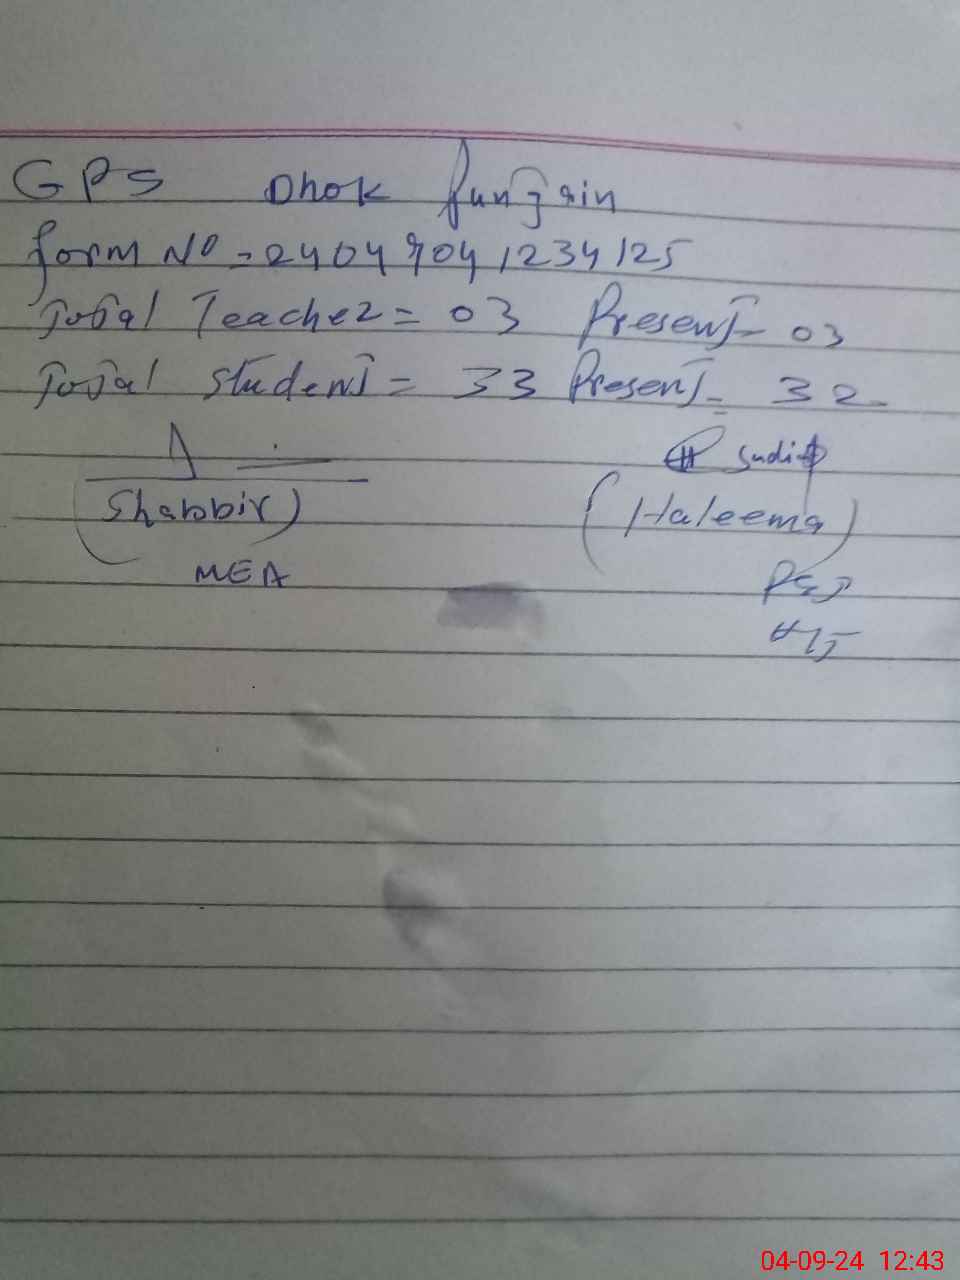 GPS Dhok
Form No = 24049041234125
Total Teacher = 03 Present = 03
Total Student = 33 Present = 32
(Shabbir)
(Haleema)
MEA
PST
04-09-24 12:43